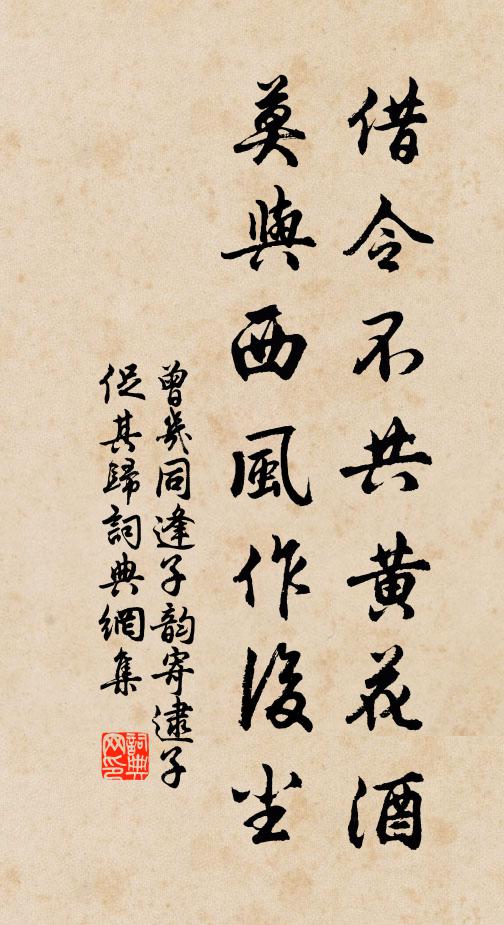 借令不共黄花酒
莫與西風作後尘
曾幾同逢子韵寄逮子
促其歸詞典網集
詞典
网印